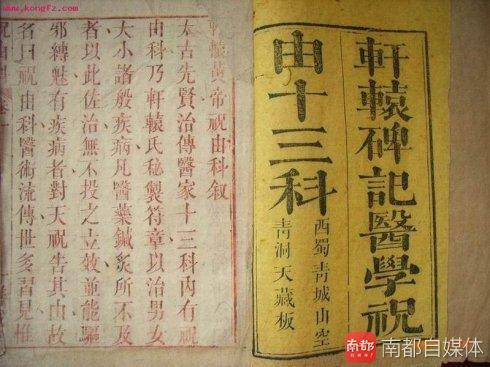 www.kongfz.com
軒轅碑記醫學祝
由十三科
西蜀青城山空
青洞天藏板
軒轅黃帝祝由科叙
太古先賢治傳醫家十三科內有祝
由科乃軒轅氏秘製符章以治男女
大小諸般疾病凡醫藥鍼炙所不及
者以此佐治無不投之立效並能驅
邪縛魅有疾病者對天祝告其由故
名曰祝由科醫術流傳世多習見惟
南都
南都自媒体